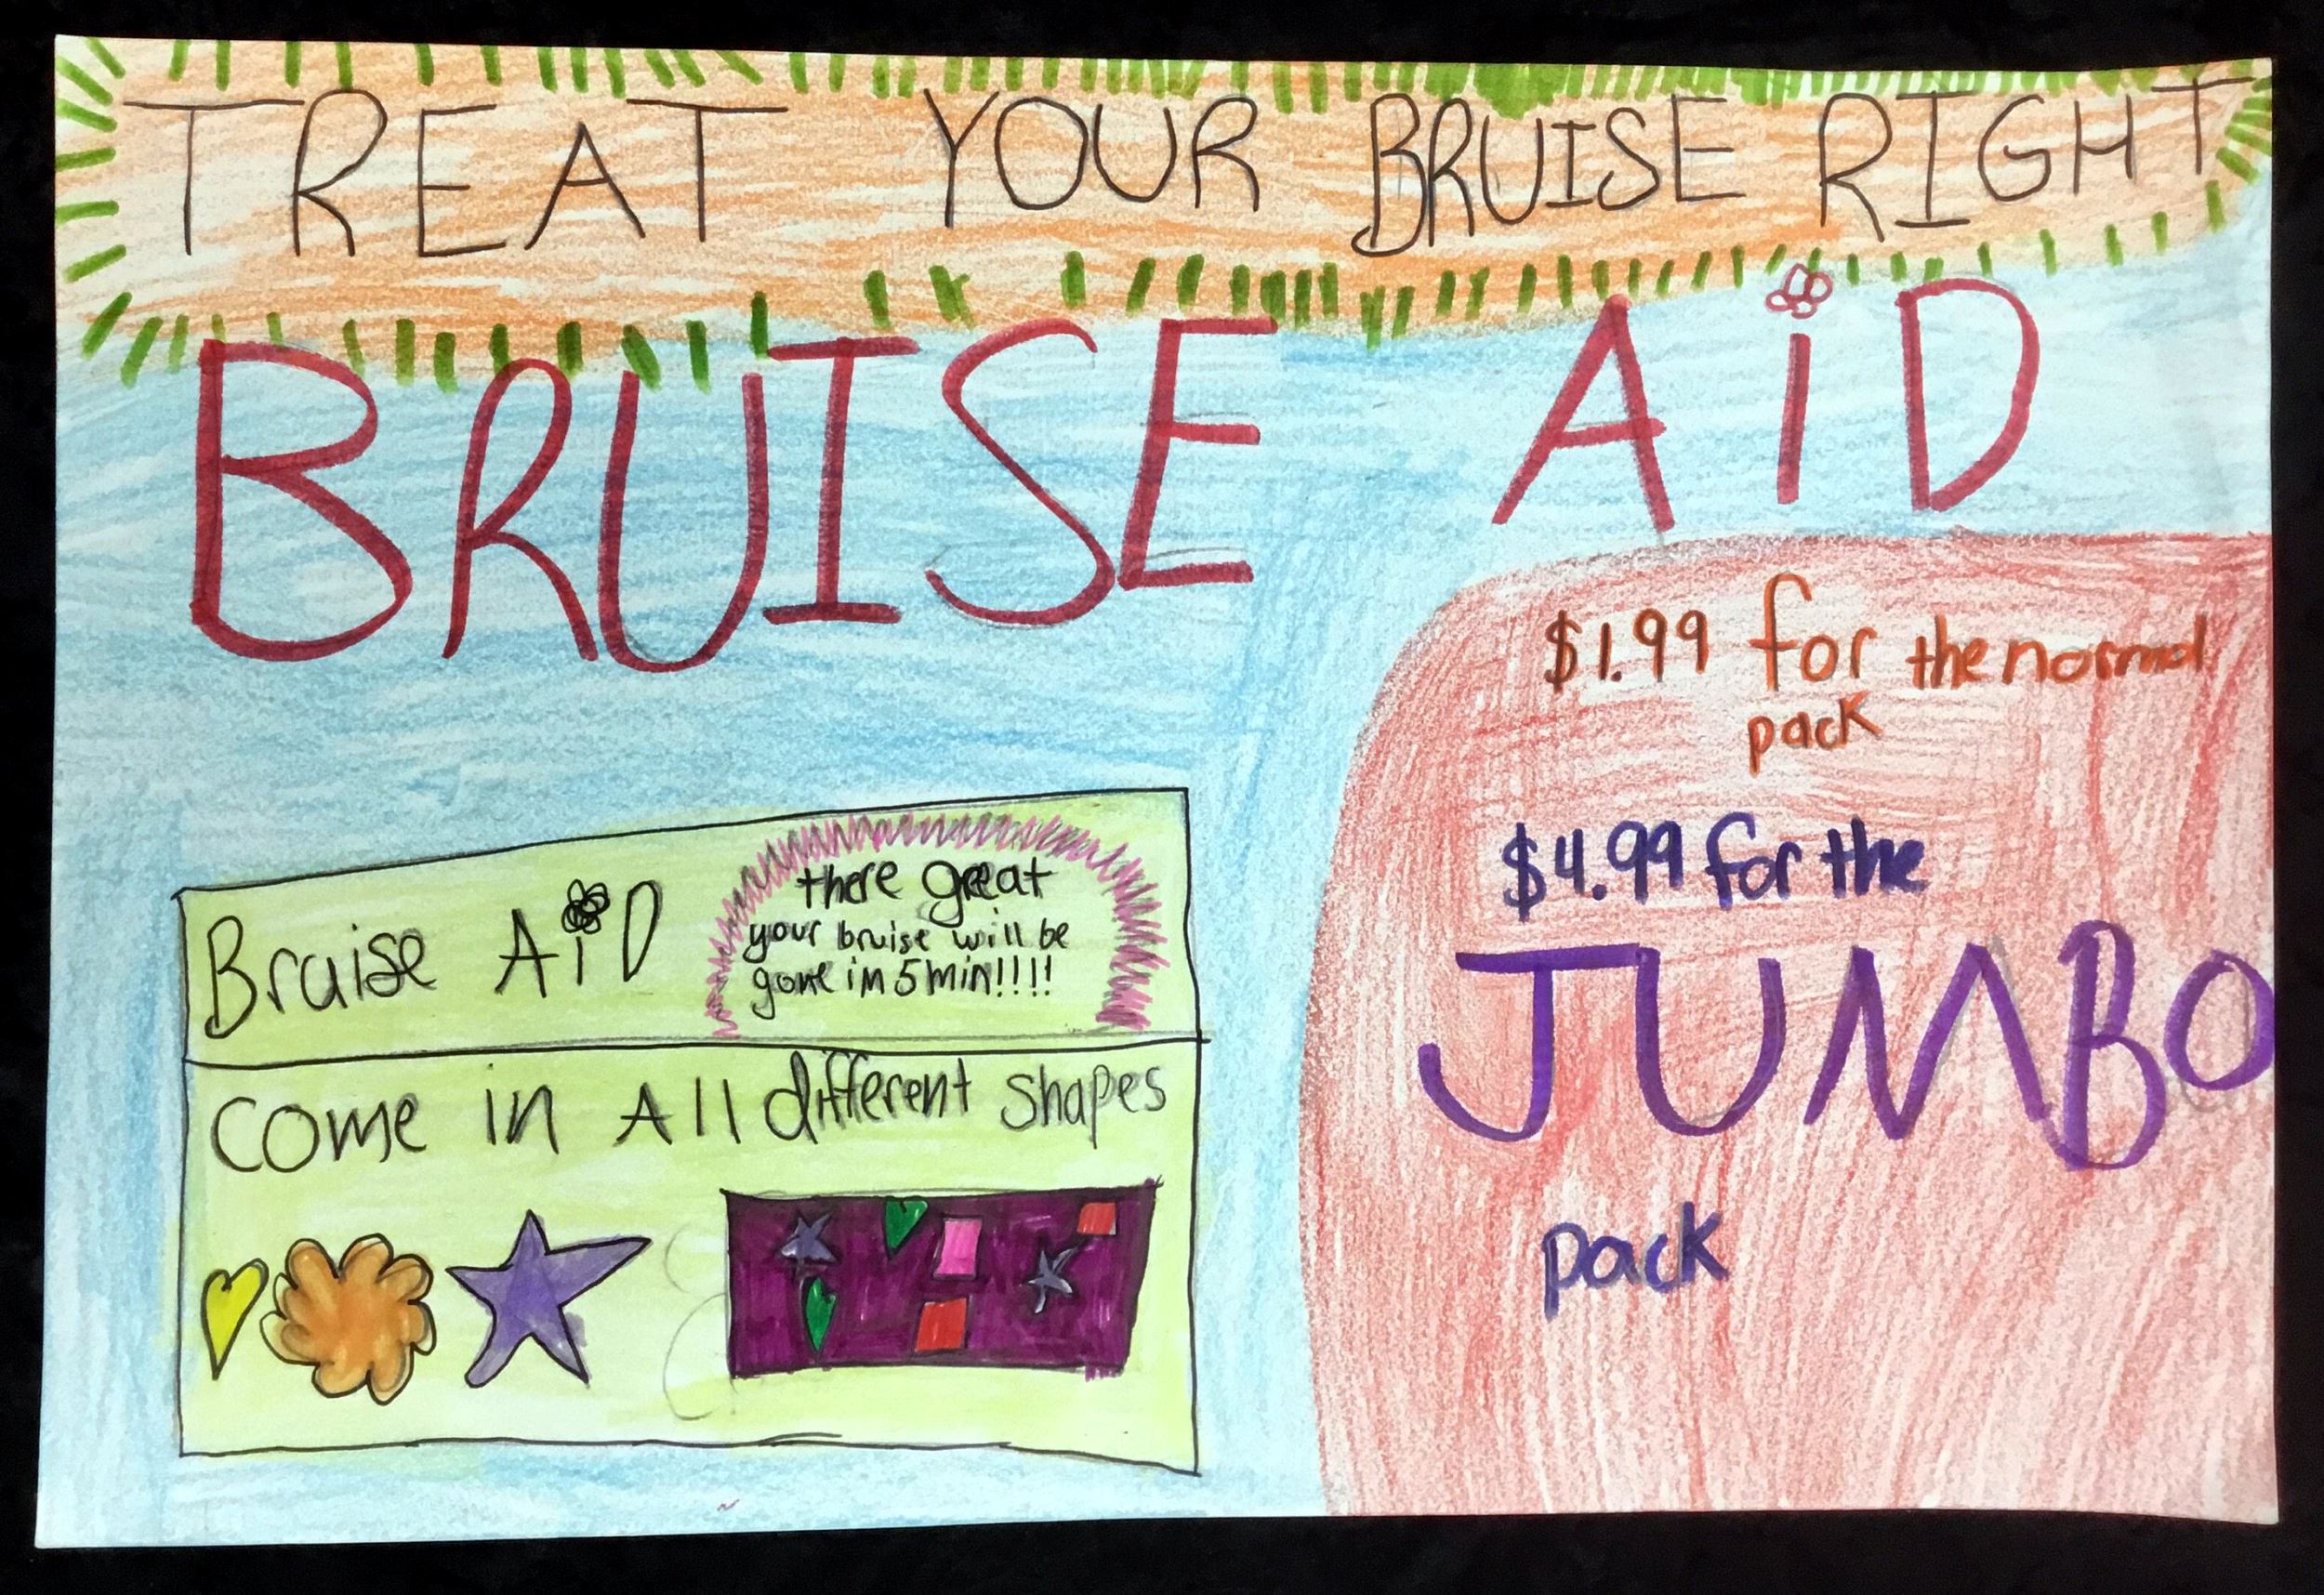 TREAT YOUR BRUISE RIGHT
BRUISE AiD
$1.99 for the normal
pack
$4.99 for the
JUMBO
pack
Bruise AiD
there great
your bruise will be
gone in 5 min!!!!
Come in All different shapes